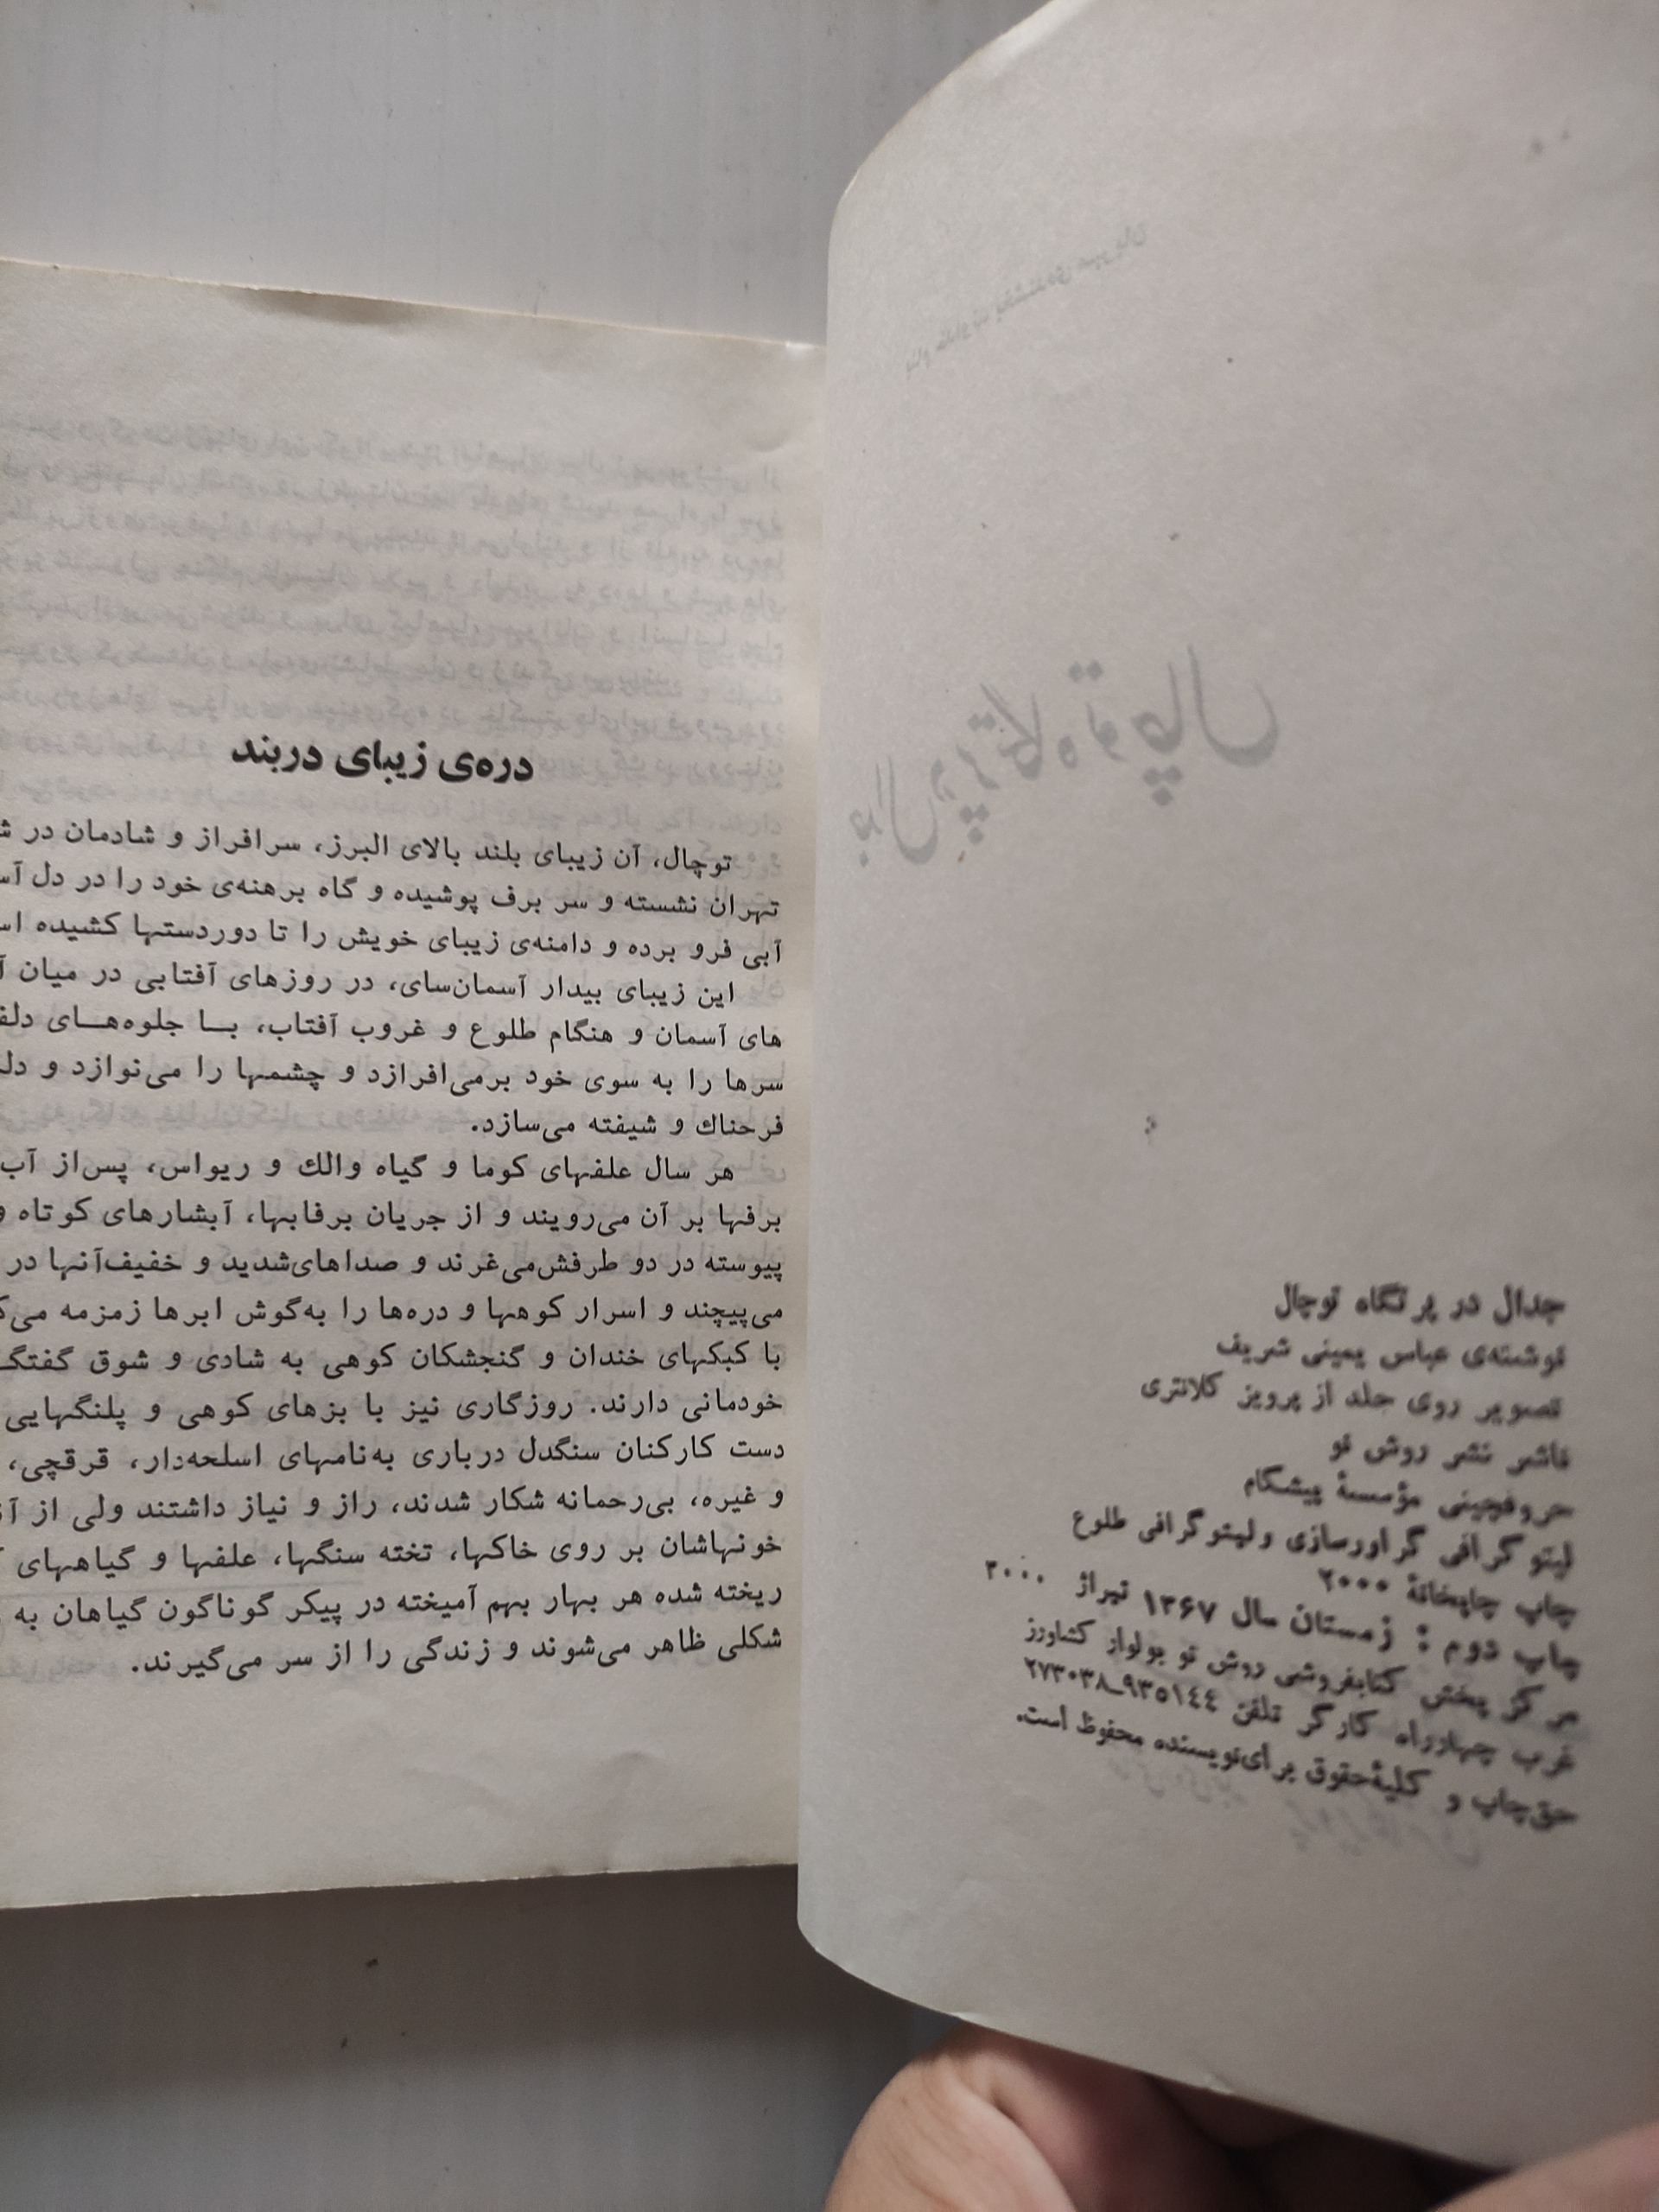 جدال در پرتگاه توچال
نوشته‌ی عباس یمینی شریف
تصویر روی جلد از پرویز کلانتری
ناشر نشر روش نو
حروفچینی مؤسسهٔ پیشگام
لیتوگرافی گراورسازی ولیتوگرافی طلوع
چاپ چاپخانهٔ ۲۰۰۰
چاپ دوم : زمستان سال ۱۳۶۷ تیراژ ۳۰۰۰
مرکز پخش کتابفروشی روش نو بولوار کشاورز
غرب چهارراه کارگر تلفن ۹۳۵۱٤٤-۲۷۳۰۳۸
حق‌چاپ و کلیهٔ‌حقوق برای‌نویسنده محفوظ است.
دره‌ی زیبای دربند
توچال، آن زیبای بلند بالای البرز، سرافراز و شادمان در
تهران نشسته و سر برف پوشیده و گاه برهنه‌ی خود را در دل
آبی فرو برده و دامنه‌ی زیبای خویش را تا دوردستها کشیده
این زیبای بیدار آسمان‌سای، در روزهای آفتابی در میان
های آسمان و هنگام طلوع و غروب آفتاب، بـا جلوه‌هـای
سرها را به سوی خود برمی‌افرازد و چشمها را می‌نوازد و
فرحناك و شیفته می‌سازد.
هر سال علفهای کوما و گیاه والك و ریواس، پس‌از آب
برفها بر آن می‌رویند و از جریان برفابها، آبشارهای کوتاه
پیوسته در دو طرفش‌می‌غرند و صداهای‌شدید و خفیف‌آنها در
می‌پیچند و اسرار کوهها و دره‌ها را به‌گوش ابرها زمزمه
با کبکهای خندان و گنجشکان کوهی به شادی و شوق
خودمانی دارند. روزگاری نیز با بزهای کوهی و پلنگهایی
دست کارکنان سنگدل درباری به‌نامهای اسلحه‌دار، قرقچی،
و غیره، بی‌رحمانه شکار شدند، راز و نیاز داشتند ولی از
خونهاشان بر روی خاکها، تخته سنگها، علفها و گیاههای
ریخته شده هر بهار بهم آمیخته در پیکر گوناگون گیاهان به
شکلی ظاهر می‌شوند و زندگی را از سر می‌گیرند.